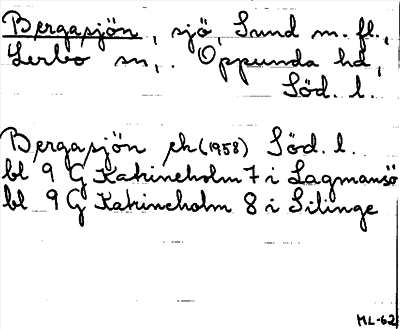 Bergasjön, sjö, Sund m. fl.,
Lerbo sn, Oppunda hd,
Söd. l.
Bergasjön ek (1958) Söd. l.
bl 9 G Katrineholm 7 i Lagmansö
bl 9 G Katrineholm 8 i Silinge
ML-62